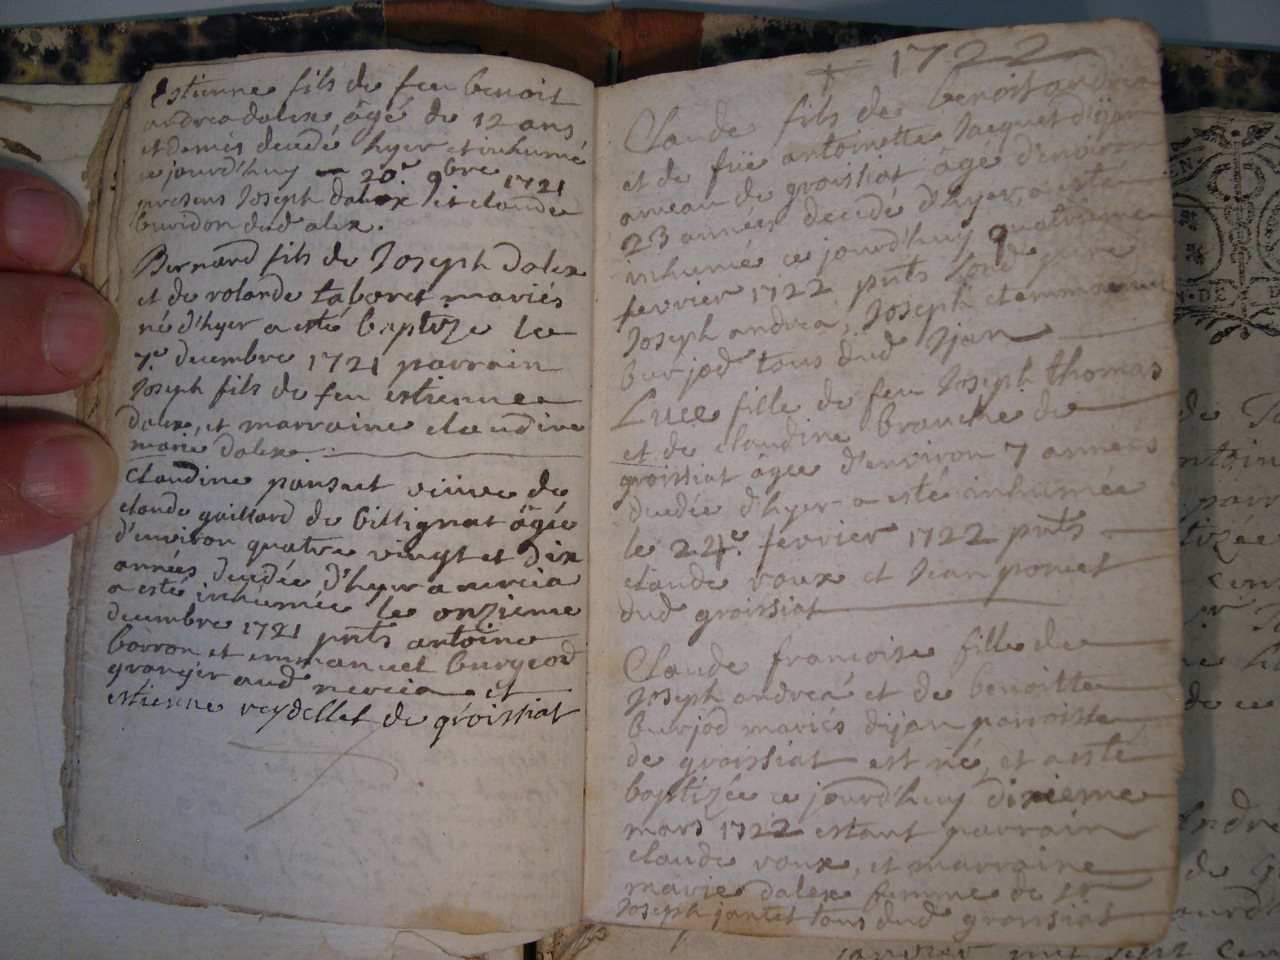 estienne fils de feu benoit
andrea dalex âgé de 12 ans
et demis decedé hyer et inhumé
ce jourd'huy 20e 9bre 1721
presens Joseph dalex et claude
buridon dud alex.
Bernard fils de Joseph dalex
et de rolande taboret mariés
né d'hyer a esté baptizé le
7.e decembre 1721 parrain
Joseph fils de feu estienne
dalex, et marraine claudine
marie dalex.
Claudine pansut veuve de
claude gaillard de billignat âgée
d'environ quatre vingt et dix
années decedée d'hyer a nercia
a esté inhumée le onzieme
decembre 1721 pnts antoine
borron et emmanuel burgeod
granger aud nercia et
estienne reydellet de groissiat
1722
Claude fils de benoit andrea
et de füe antoinette Jacquet d'ijan
ameau de groissiat âgé d'environ
23 années decedé d'hyer, a esté
inhumé ce jourd'huy quatrieme
fevrier 1722 pnts
Joseph andrea, Joseph et emmanuel
burjod tous dud ijan
Luce fille de feu Joseph thomas
et de claudine branche de
groissiat âgée d'environ 7 années
decedée d'hyer a esté inhumée
le 24e. fevrier 1722 pnts
claude roux et Jean poncet
dud groissiat
Claude francoise fille de
Joseph andrea et de benoitte
burjod mariés dijan parroisse
de groissiat est né, et a esté
baptizée ce jourd'huy dixieme
mars 1722 estant parrain
claude roux, et marraine
marie dalex femme de sr
Joseph jantet tous dud groissiat
janvier mil sept cen